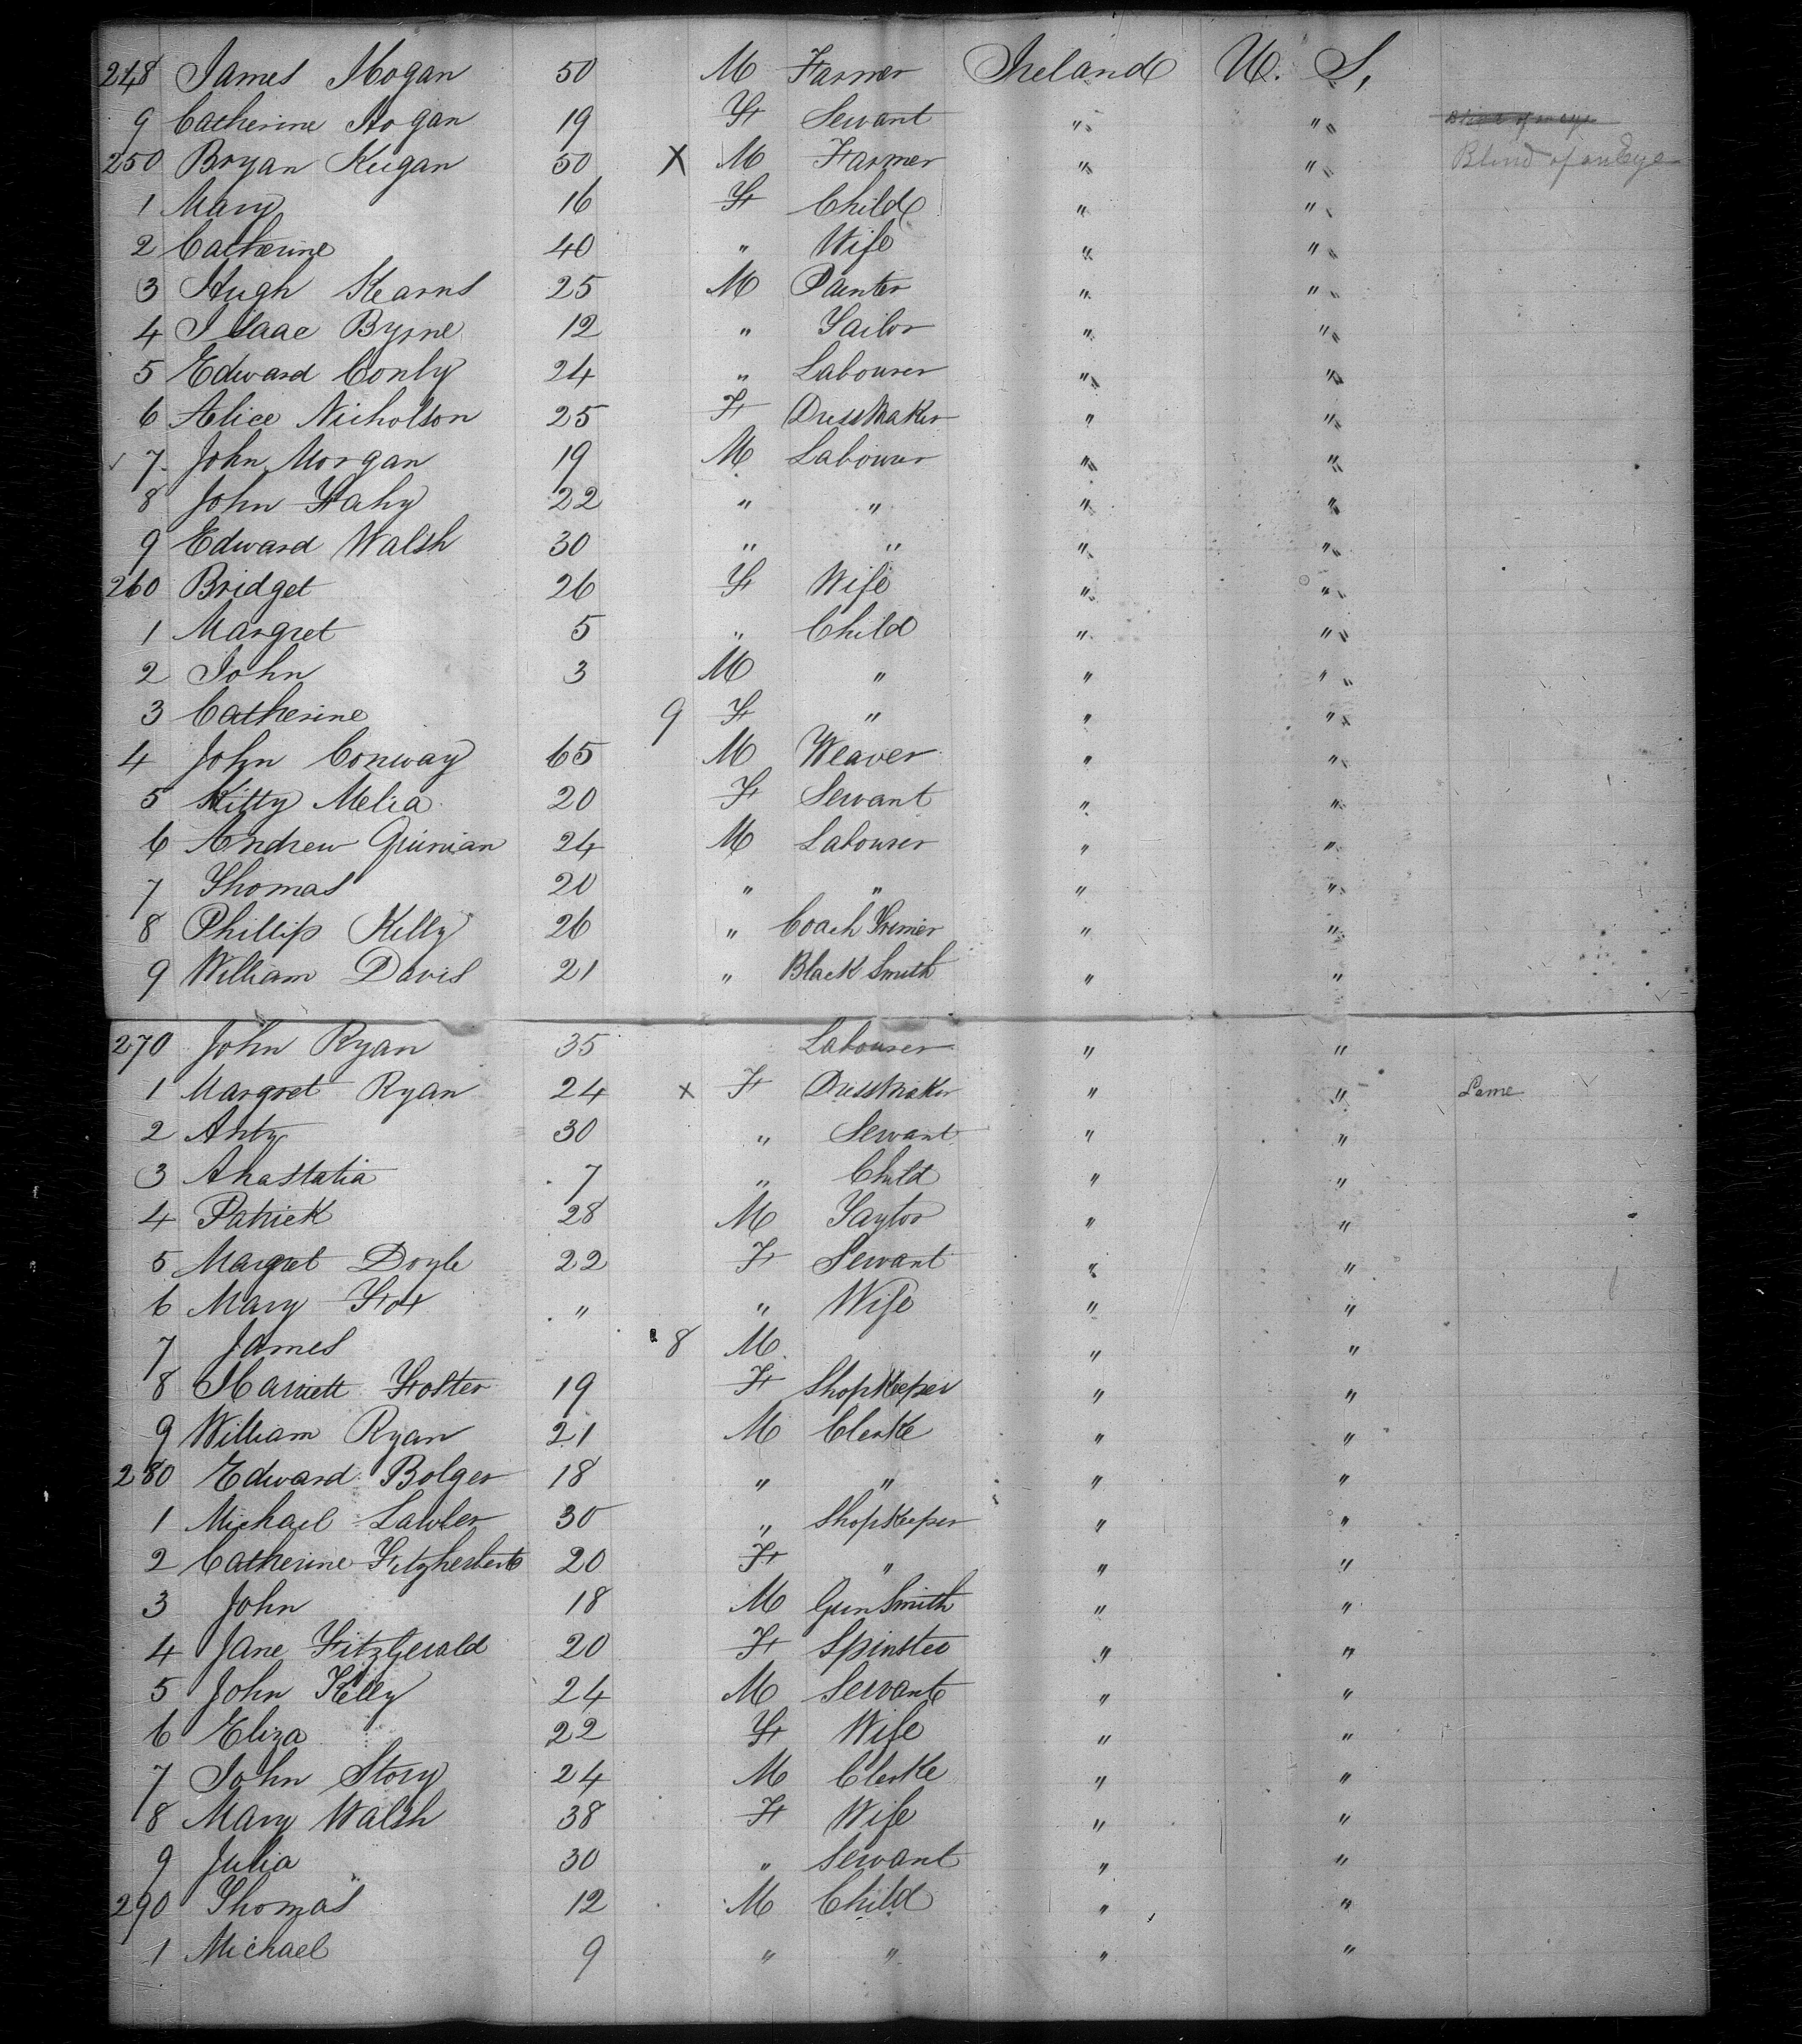 248 James Hogan 50 M Farmer Ireland U. S,
9 Catherine Hogan 19 F Servant " " Blind of an eye
250 Bryan Keegan 50 X M Farmer " " Blind of an Eye
1 Mary 16 F Child " "
2 Catherine 40 " Wife " "
3 Hugh Kearns 25 M Painter " "
4 Isaac Byrne 12 " Tailor " "
5 Edward Conly 24 " Labourer " "
6 Alice Nicholson 25 F DressMaker " "
7 John Morgan 19 M Labourer " "
8 John Fahy 22 " " " "
9 Edward Walsh 30 " " " "
260 Bridget 26 F Wife " "
1 Margret 5 " Child " "
2 John 3 M " " "
3 Catherine 9 F " " "
4 John Conway 65 M Weaver " "
5 Kitty Melia 20 F Servant " "
6 Andrew 24 M Labourer " "
7 Thomas 20 " " " "
8 Phillip Kelly 26 " Coach Trimer " "
9 William Davis 21 " Black Smith " "
270 John Ryan 35 Labourer " "
1 Margret Ryan 24 x F DressMaker " " Lame
2 Anty 30 " Servant " "
3 Anastatia 7 " Child " "
4 Patrick 28 M Taylor " "
5 Margret Doyle 22 F Servant " "
6 Mary Fox " " Wife " "
7 James 8 M " "
8 Harriett Foster 19 F ShopKeeper " "
9 William Ryan 21 M Clerke " "
280 Edward Bolger 18 " " " "
1 Michael Lawler 30 " ShopKeeper " "
2 Catherine Fitzherbert 20 F " " "
3 John 18 M GunSmith " "
4 Jane FitzGerald 20 F Spinster " "
5 John Kelly 24 M Servant " "
6 Eliza 22 F Wife " "
7 John Story 24 M Clerke " "
8 Mary Walsh 38 F Wife " "
9 Julia 30 " Servant " "
290 Thomas 12 M Child " "
1 Michael 9 " " " "